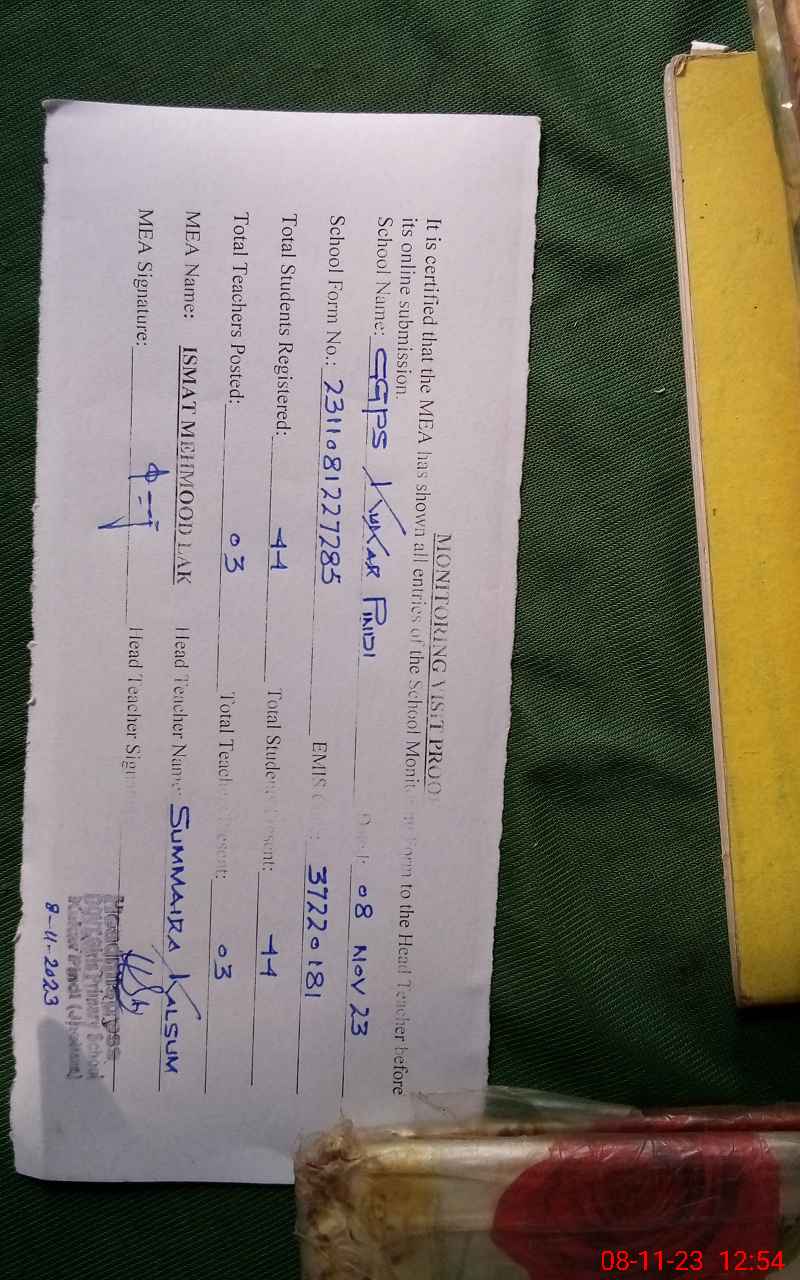 MONITORING VISIT PROOF
It is certified that the MEA has shown all entries of the School Monitoring Form to the Head Teacher before
its online submission.
School Name: GGPS KUKAR PINDI Dated: 08 NOV 23
School Form No.: 2311081227285 EMIS 37220181
Total Students Registered: 44 Total Students Present: 44
Total Teachers Posted: 03 Total Teachers Present: 03
MEA Name: ISMAT MEHMOOD LAK Head Teacher Name: SUMMAIRA KALSUM
MEA Signature: Head Teacher Signature
Headmistress
Primary School
8-11-2023
08-11-23 12:54